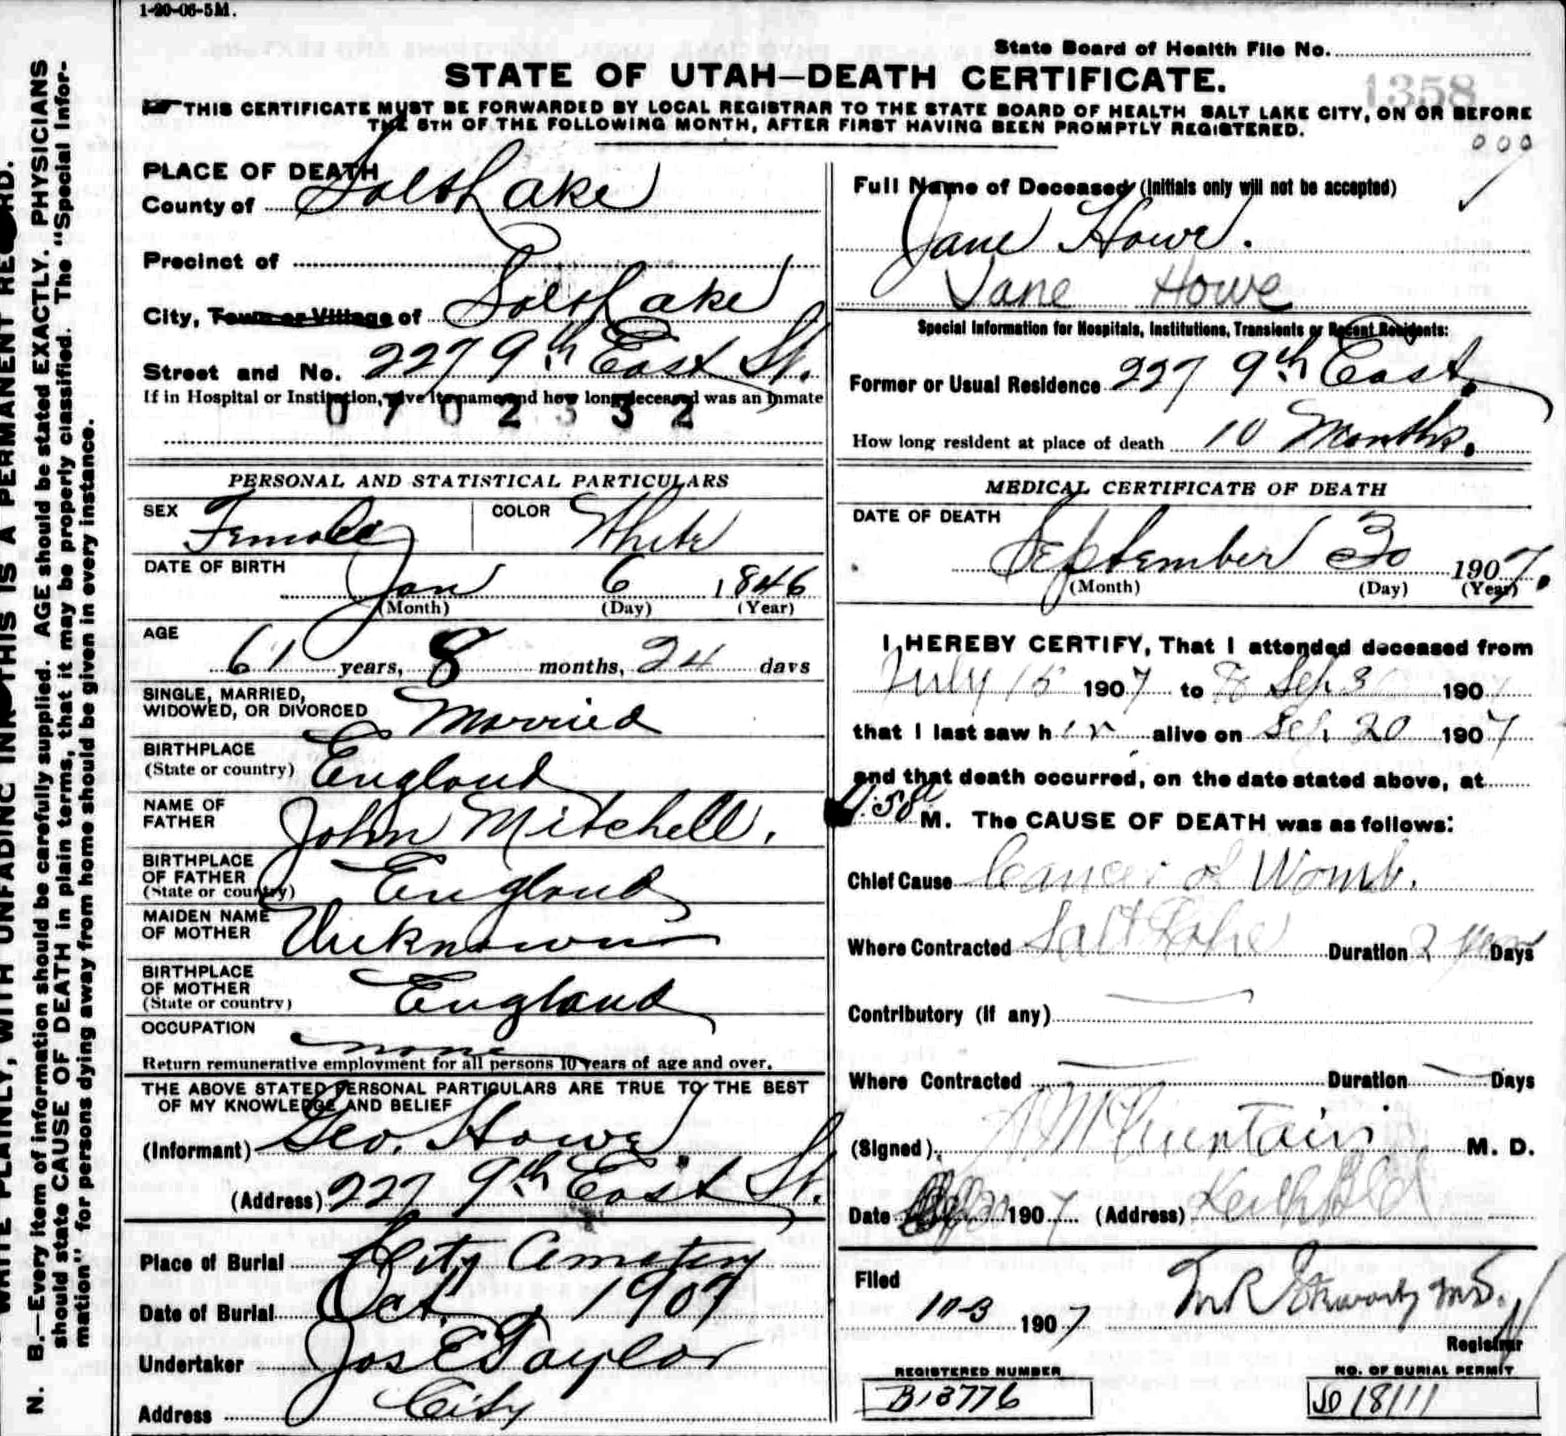 1-20-06-5M.
State Board of Health File No.
1358
STATE OF UTAH—DEATH CERTIFICATE.
THIS CERTIFICATE MUST BE FORWARDED BY LOCAL REGISTRAR TO THE STATE BOARD OF HEALTH SALT LAKE CITY, ON OR BEFORE
THE 5TH OF THE FOLLOWING MONTH, AFTER FIRST HAVING BEEN PROMPTLY REGISTERED.
N. B.—Every item of information should be carefully supplied. AGE should be stated EXACTLY. PHYSICIANS
should state CAUSE OF DEATH in plain terms, that it may be properly classified. The "Special Infor-
mation" for persons dying away from home should be given in every instance.
WRITE PLAINLY, WITH UNFADING INK THIS IS A PERMANENT RECORD.
PLACE OF DEATH
County of Salt Lake
Precinct of
City, Town or Village of Salt Lake
Street and No. 227 9th East St.
If in Hospital or Institution, give its name and how long deceased was an Inmate
0702332
PERSONAL AND STATISTICAL PARTICULARS
SEX Female COLOR White
DATE OF BIRTH Jan 6 1846
(Month) (Day) (Year)
AGE 61 years, 8 months, 24 days
SINGLE, MARRIED,
WIDOWED, OR DIVORCED Married
BIRTHPLACE
(State or country) England
NAME OF
FATHER John Mitchell.
BIRTHPLACE
OF FATHER
(State or country) England
MAIDEN NAME
OF MOTHER Unknown
BIRTHPLACE
OF MOTHER
(State or country) England
OCCUPATION none
Return remunerative employment for all persons 10 years of age and over.
THE ABOVE STATED PERSONAL PARTICULARS ARE TRUE TO THE BEST
OF MY KNOWLEDGE AND BELIEF
(Informant) Geo. Howe
(Address) 227 9th East St.
Place of Burial City Cemetery
Date of Burial Oct. 1907
Undertaker Jos E Taylor
Address City
Full Name of Deceased (Initials only will not be accepted)
Jane Howe.
Jane Howe
Special Information for Hospitals, Institutions, Transients or Recent Residents:
Former or Usual Residence 227 9th East.
How long resident at place of death 10 Months.
MEDICAL CERTIFICATE OF DEATH
DATE OF DEATH
September 30 1907.
(Month) (Day) (Year)
I HEREBY CERTIFY, That I attended deceased from
July 15 1907 to Sep 30 1907
that I last saw h er alive on Sep. 20 1907
and that death occurred, on the date stated above, at
M. The CAUSE OF DEATH was as follows:
Chief Cause Cancer of Womb.
Where Contracted Salt Lake Duration 2 years Days
Contributory (if any)
Where Contracted Duration Days
(Signed) M. D.
Date 1907 (Address) Keith Bld
Filed
10-3 1907
Registrar
REGISTERED NUMBER
B13776
NO. OF BURIAL PERMIT
18111